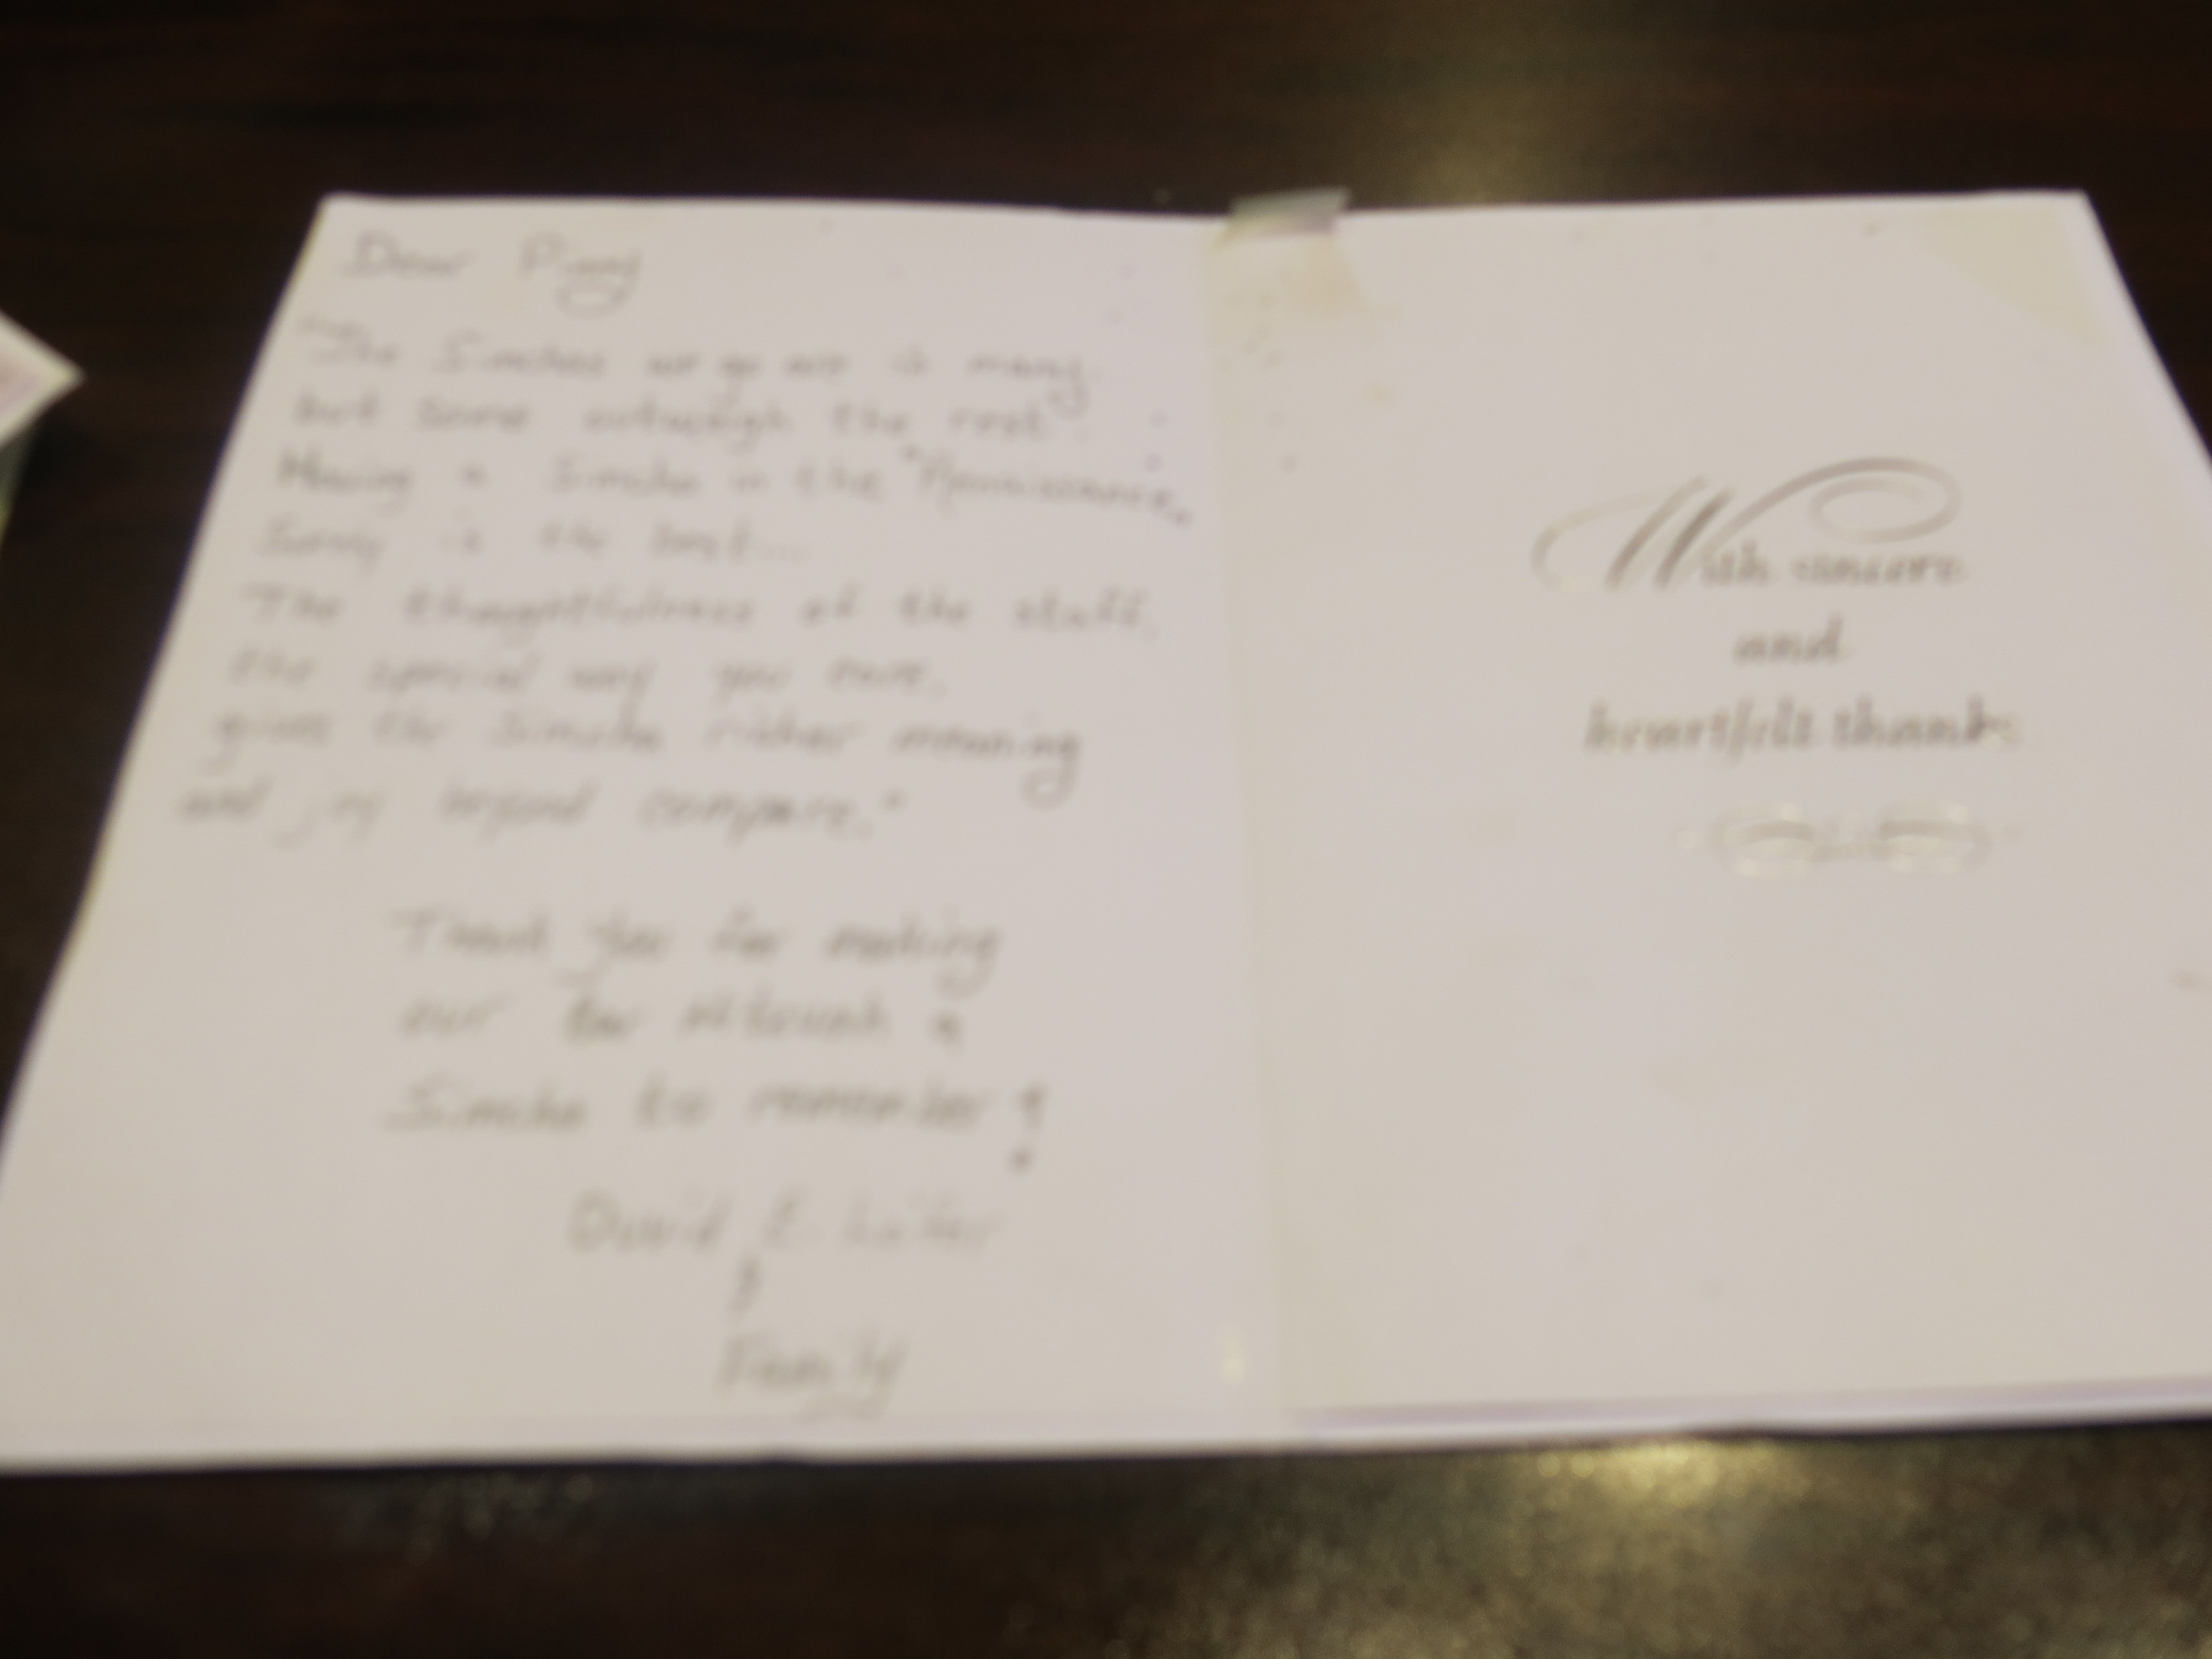 Dear Pinny
"The Simchas we go are is many,
but some outweigh the rest.
Having a Simcha in the "Renaissance"
Surely is the best...
The thoughtfulness of the staff,
the special way you care,
gives the Simcha richer meaning
and joy beyond compare."
Thank you for making
our Bar Mitzvah a
Simcha to remember!
David
&
Family
With sincere
and
heartfelt thanks